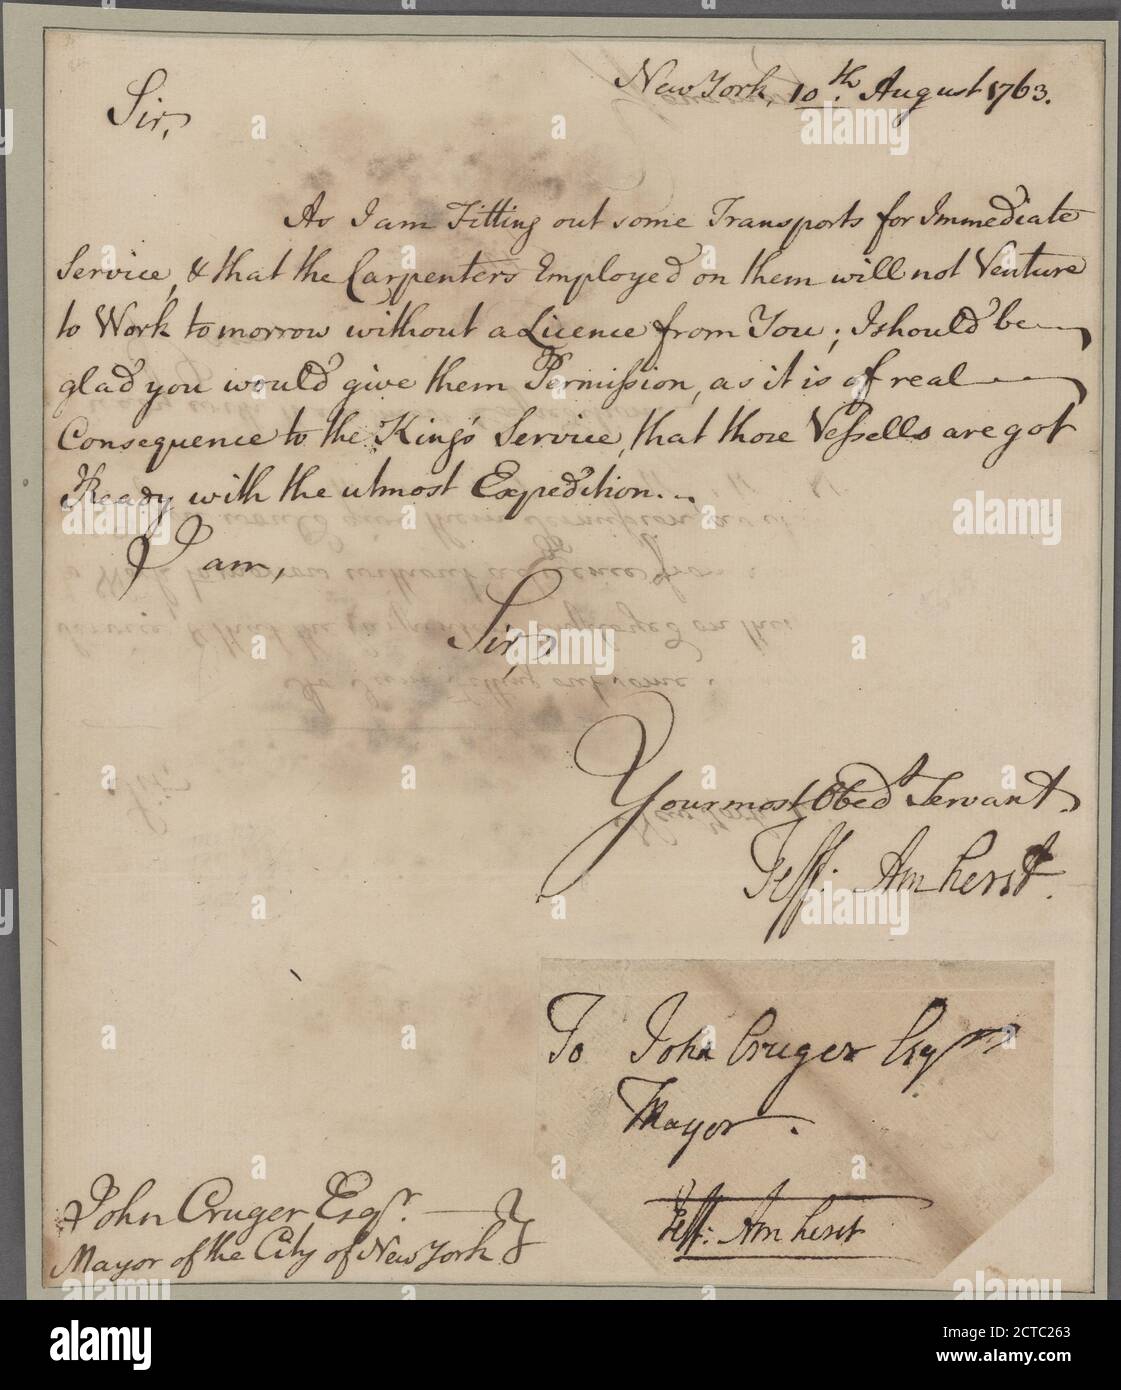 New York, 10th August 1763.
Sir,
As I am Fitting out some Transports for Immediate
Service, & that the Carpenters Employed on them will not Venture
to Work tomorrow without a Licence from You; I should be
glad you would give them Permission, as it is of real
Consequence to the King's Service, that those Vessells are got
Ready with the utmost Expedition.
I am,
Sir,
Your most Obedt Servant,
Jeff: Amherst.
To John Cruger Esqr
Mayor.
Jeff: Amherst
John Cruger, Esqr.
Mayor of the City of New York
alamy
Image ID: 2CTC263
www.alamy.com